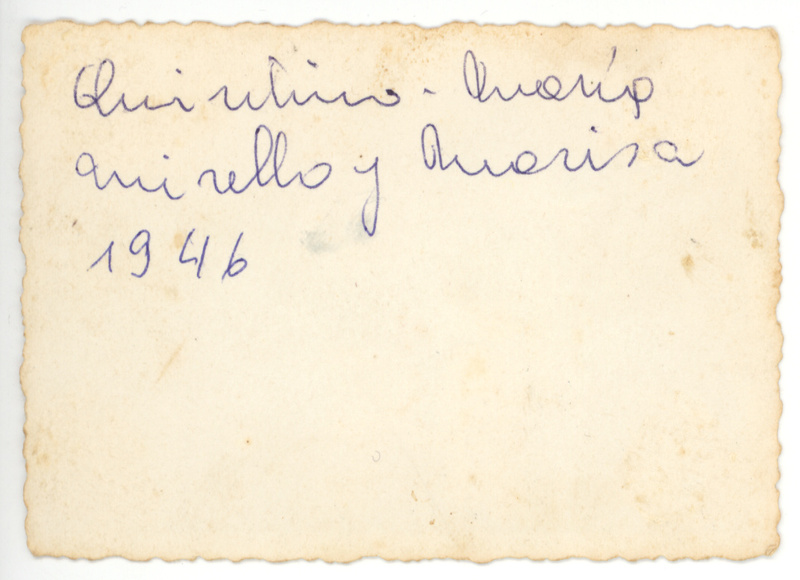 Quintino - María
Mirello y Marisa
1946